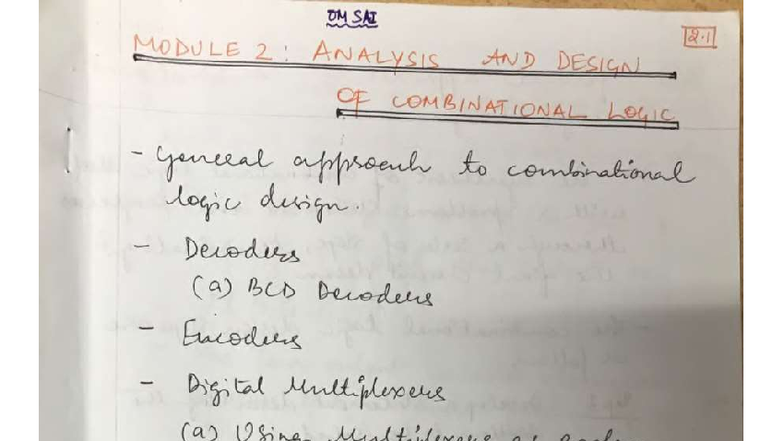 OM SAI
2.1
MODULE 2: ANALYSIS AND DESIGN
OF COMBINATIONAL LOGIC
- General approach to combinational
logic design.
- Decoders
(a) BCD Decoders
- Encoders
- Digital Multiplexers
(a) Using Multiplexers as